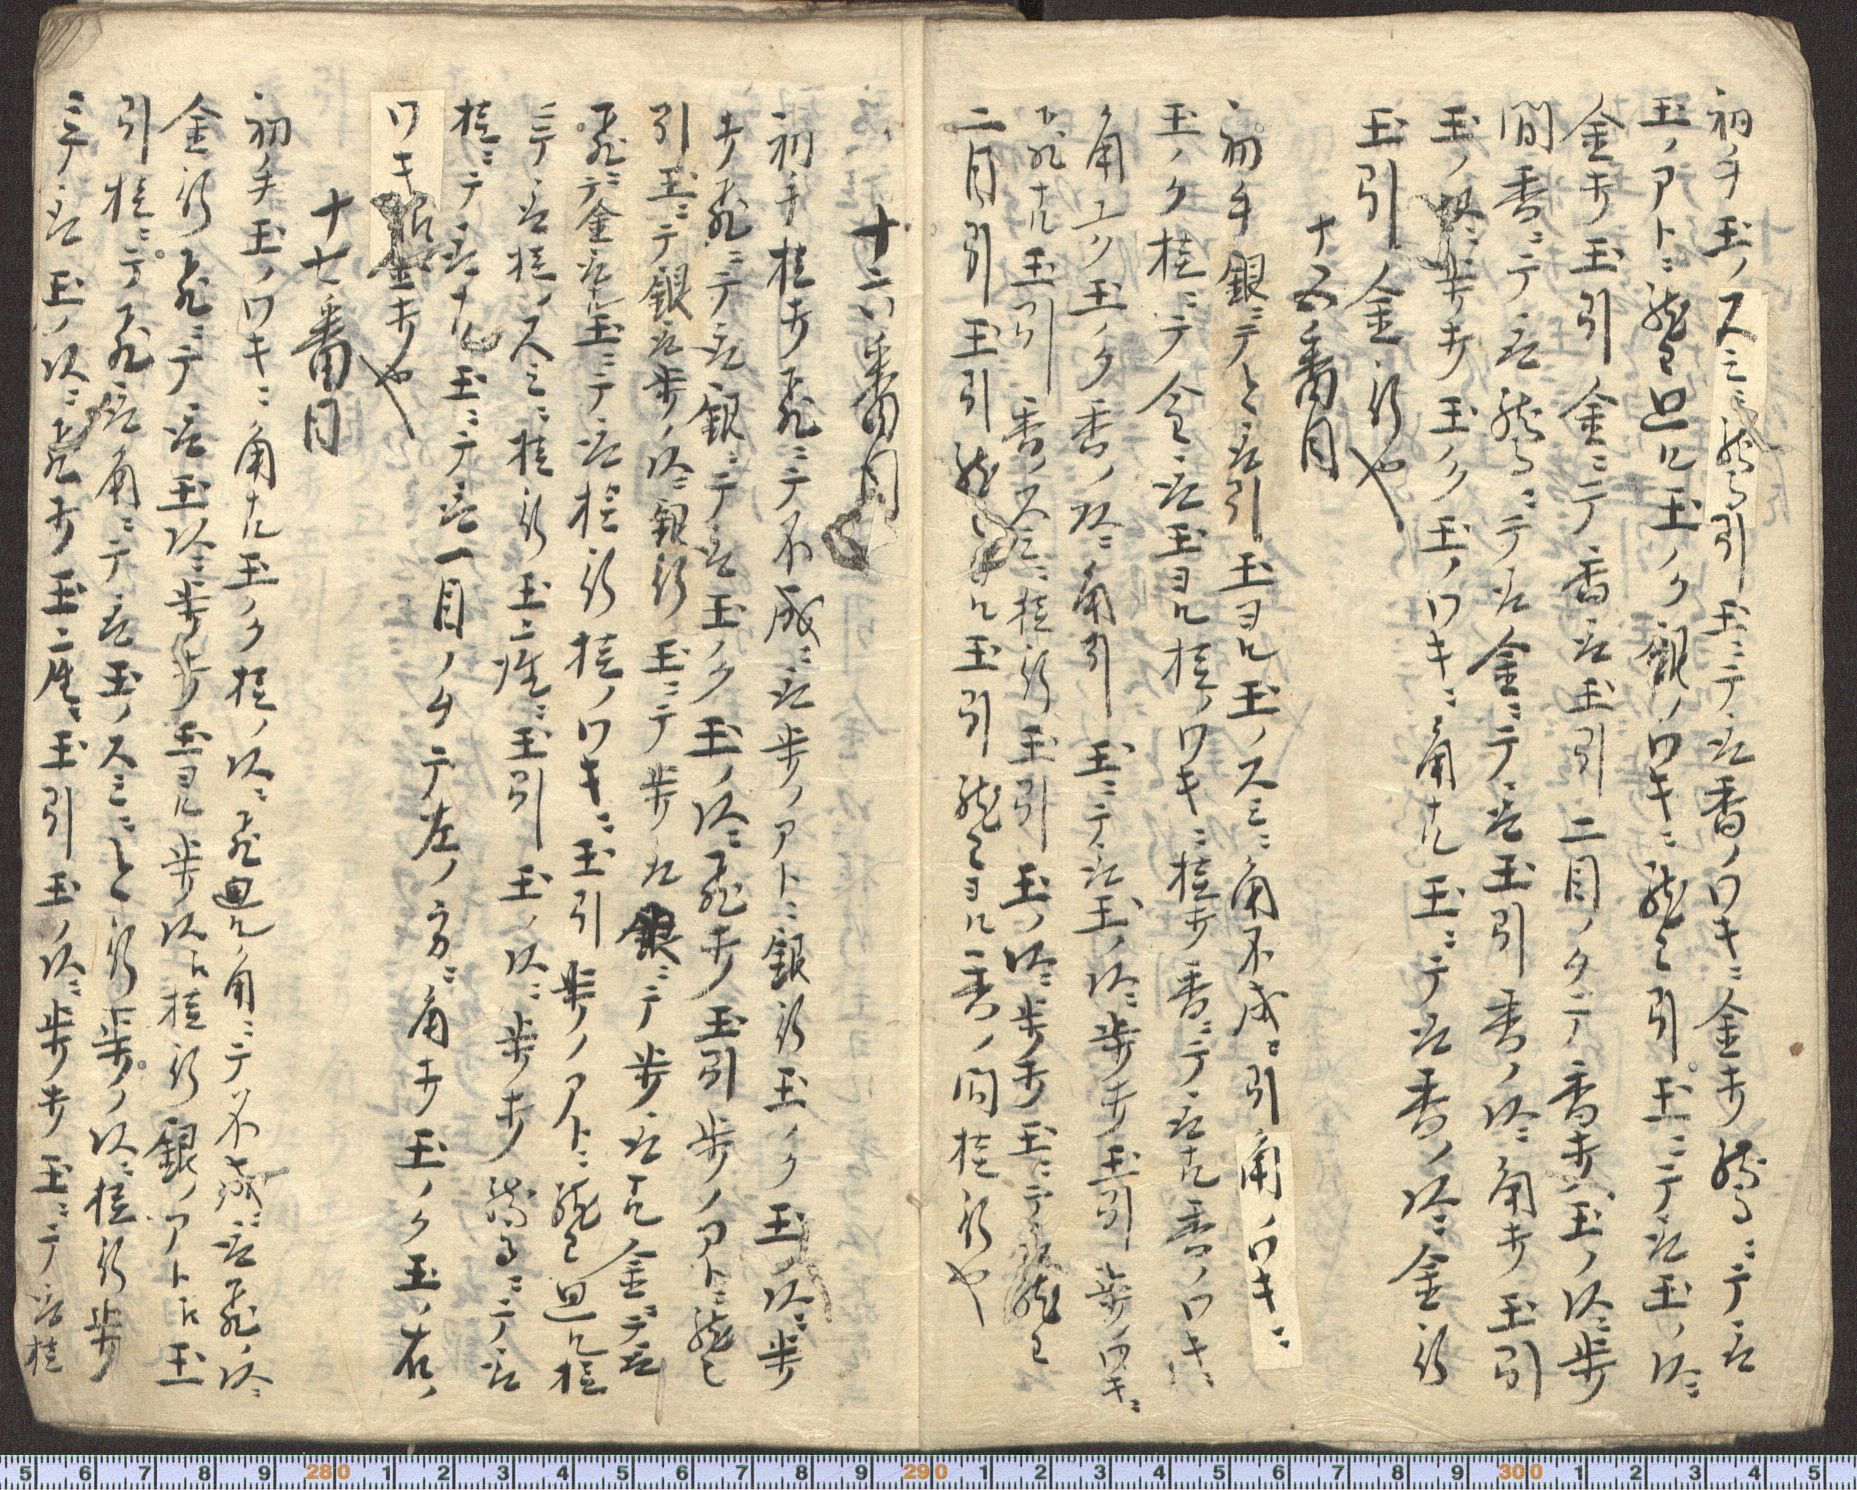 初手玉ノスミニ龍馬引玉ニテ取香ノワキニ金打龍馬ニテ取
玉ノアトニ龍王廻ル玉ノク銀ノワキニ龍王引玉ニテ取玉ノ次ニ
金打玉引金ニテ香取玉引二目ノクテ香打玉ノ次ニ歩
間香ニテ取龍馬ニテ取金ニテ取玉引香ノ次ニ角打玉引
玉ノ次ニ歩打玉ノク玉ノワキニ角ナル玉ニテ取香ノ次ニ金行
玉引金行也
十五番目
初手銀ニテと取引玉ヨル玉ノスミニ角不成ニ引角ノワキニ
玉ノク桂ニテ金取玉ヨル桂ノワキニ桂打香ニテ取ナル香ノワキニ
角上ク玉ノク香ノ次ニ角引玉ニテ取玉ノ次ニ歩打玉引歩ノワキニ
飛ナル玉引香ノスミニ桂行玉引玉ノ次ニ歩打玉ニテ取龍王
二目引玉引龍王ヨル玉引龍王ヨル香ノ間桂行也
十六番目
初手桂打飛ニテ不成ニ取歩ノアトニ銀行玉ノク玉ノ次ニ歩
打飛ニテ取銀ニテ取玉ノク玉ノ次ニ飛打玉引歩ノアトニ龍王
引玉ニテ銀取歩ノ次ニ銀行玉ニテ歩取銀ニテ歩取ナル金ニテ取
飛ニテ金取ル玉ニテ取桂行桂ノワキニ玉引歩ノアトニ龍王廻ル桂
ニテ取桂ノスミニ桂行玉二座ニ玉引玉ノ次ニ歩打龍馬ニテ取
桂ニテ取ナル玉ニテ取一目ノクテ左ノ方ニ角打玉ノク玉ノ右ノ
ワキニ金打也
十七番目
初手玉ノワキニ角ナル玉ノク桂ノ次ニ飛廻ル角ニテ不成ニ取飛ノ次ニ
金行飛ニテ取玉次ニ歩打玉ヨル歩ノ次ニ桂行銀ノアトニ玉
引桂ニテ飛取角ニテ取玉ノスミニと行歩ノ次ニ桂行歩
ニテ取玉ノ次ニ飛打玉二座ニ玉引玉ノ次ニ歩打玉ニテ取桂